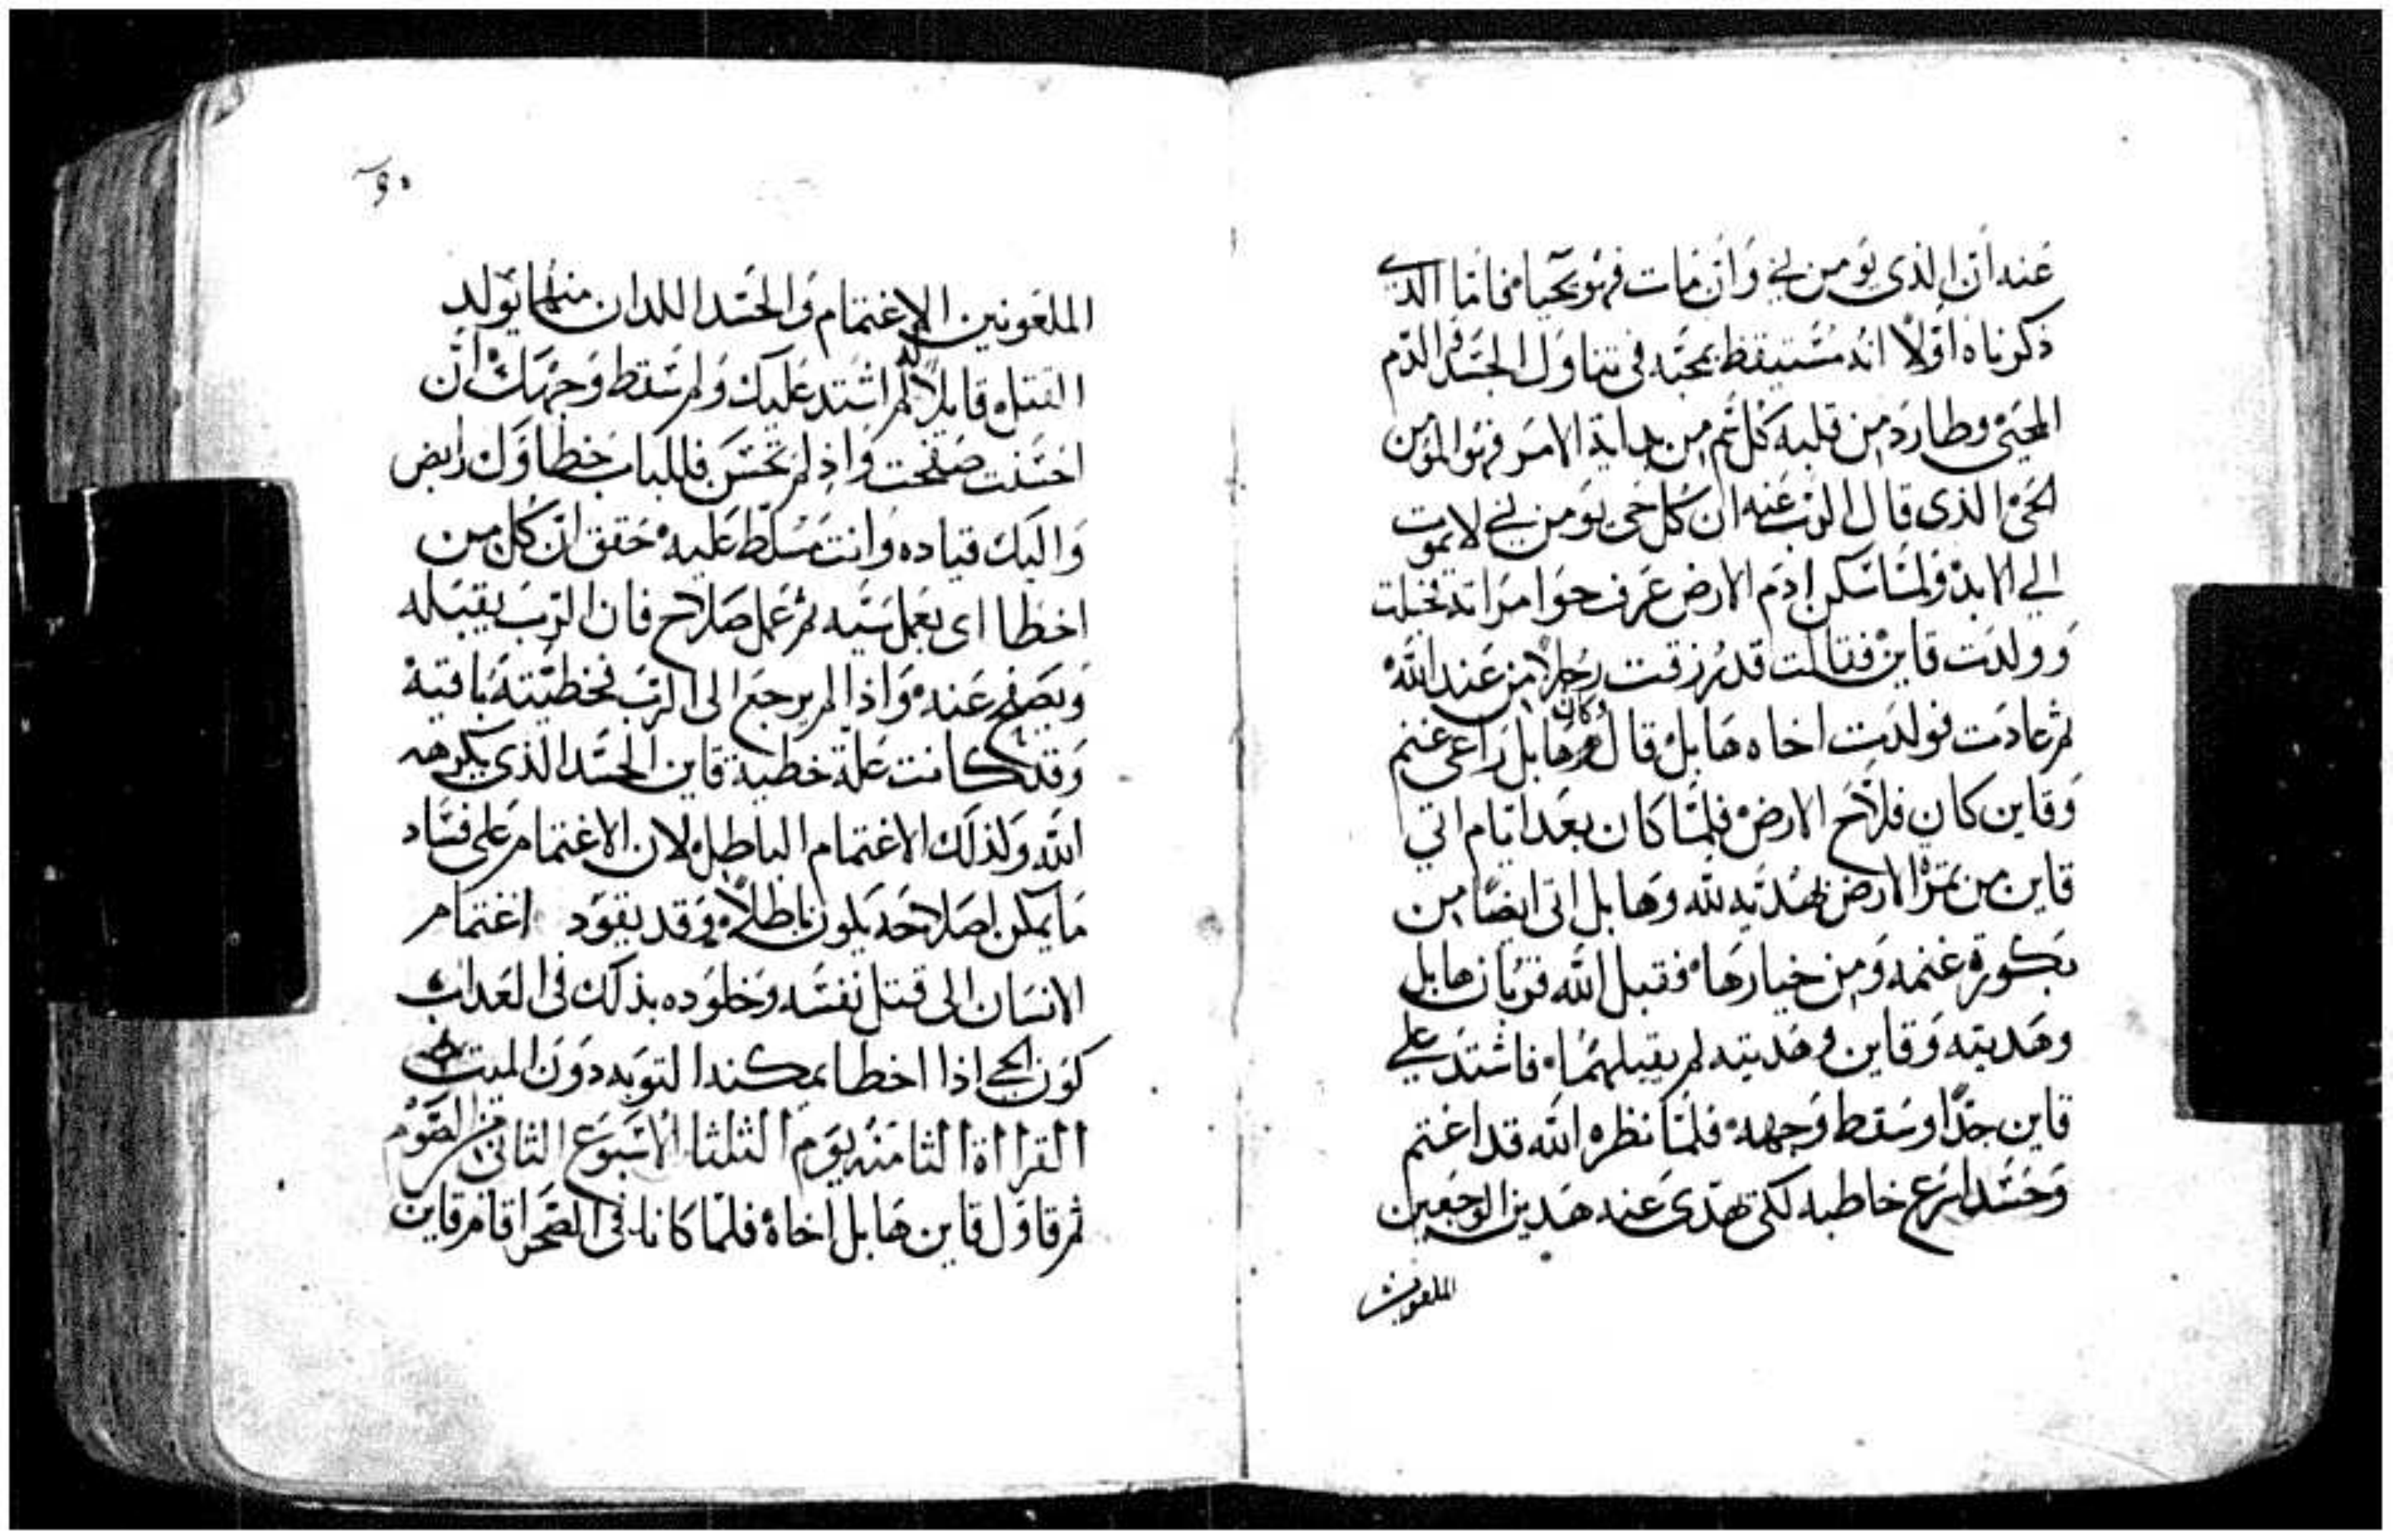 عنه ان الذى يومن بي وان مات فهو يحيا فاما الذي
ذكرناه اولا انه مستيقظ بمحبه فى تناول الجسد والدم
المحيي وطارد من قلبه كل شر من بداية الامر فهو المومن
الحي الذى قال الرب عنه ان كل حي يومن بي لا يموت
الي الابد ولما سكن ادم الارض عرف حوا امراته فحبلت
وولدت قاين فقالت قد رزقت رجلا من عند الله
ثم عادت فولدت اخاه هابل قال وكان هابل راعي غنم
وقاين كان فلاح الارض فلما كان بعد ايام اتي
قاين من ثمر الارض بهديه لله وهابل اتى ايضا من
بكورة غنمه ومن خيارها فقبل الله قربان هابل
وهديته وقاين وهديته لم يقبلهما فاشتد علي
قاين جدا وسقط وجهه فلما نظره الله قد اغتم
وحسد اسرع خاطبه لكى يهدى عنه هدين الوجعين
الملعونين
الملعونين الاغتمام والحسد اللدان منهما يولد
القتل قايلا له لم اشتد عليك ولم سقط وجهك ان
احسنت صفحت واذ لم تحسن فللباب خطاوك رابض
واليك قياده وانت مسلط عليه حقق ان كل من
اخطا اى يعمل سيه ثم عمل صلاح فان الرب يقبله
ويصفح عنه واذا لم يرجع الى الرب فخطيته باقية
وقد كانت علة خطية قاين الحسد الذى يكرهه
الله ولذلك الاغتمام الباطل لان الاغتمام على فساد
ما يمكن اصلاحه يكون باطلا وقد يقود اغتمام
الانسان الى قتل نفسه وخلوده بذلك فى العداب
كون الحي اذا اخطا يمكنه التوبه دون الميت
القراة الثامنه يوم الثلثا الاسبوع الثانى من الصوم
ثم قاول قاين هابل اخاه فلما كانا فى الصحرا قام قاين